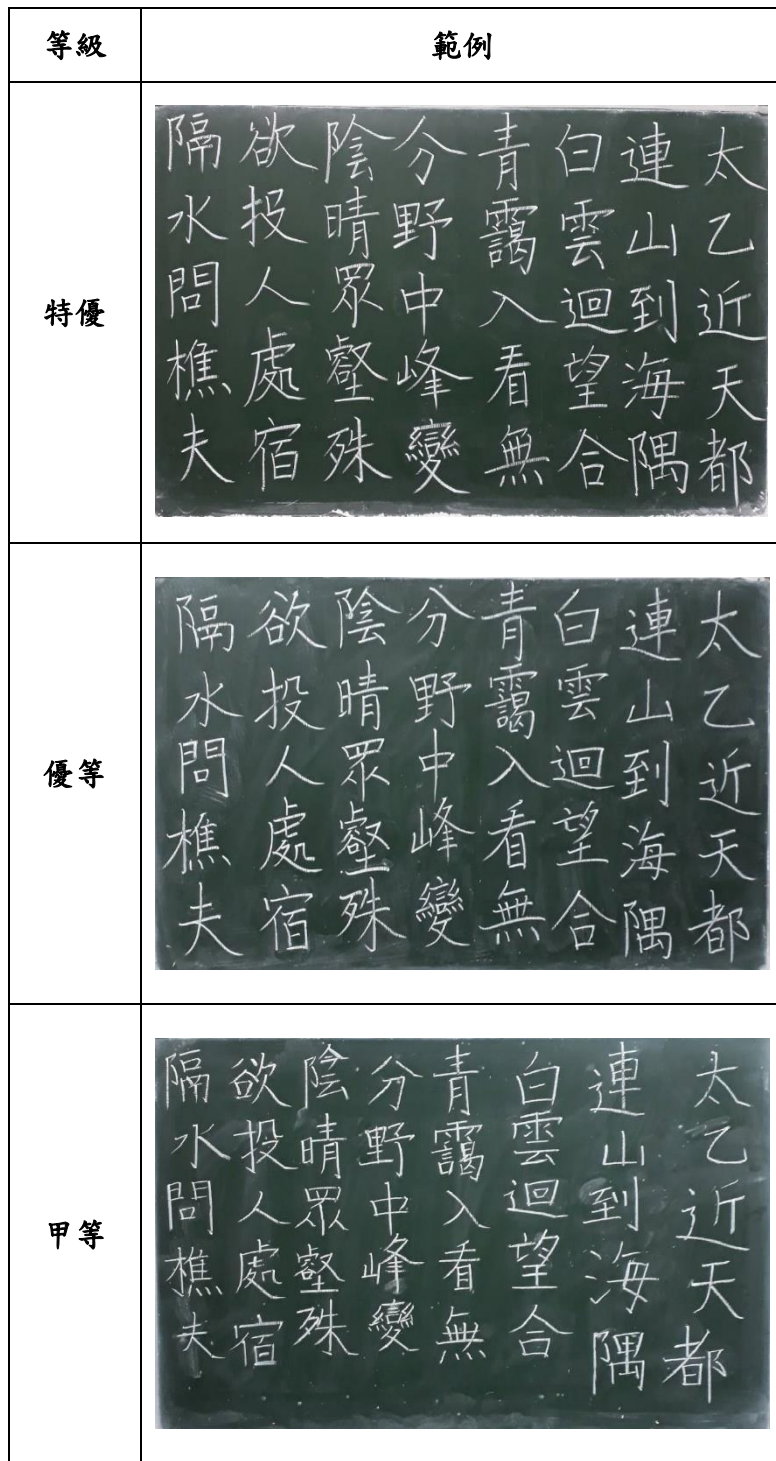 等級
範例
特優
太乙近天都
連山到海隅
白雲迴望合
青靄入看無
分野中峰變
陰晴眾壑殊
欲投人處宿
隔水問樵夫
優等
太乙近天都
連山到海隅
白雲迴望合
青靄入看無
分野中峰變
陰晴眾壑殊
欲投人處宿
隔水問樵夫
甲等
太乙近天都
連山到海隅
白雲迴望合
青靄入看無
分野中峰變
陰晴眾壑殊
欲投人處宿
隔水問樵夫